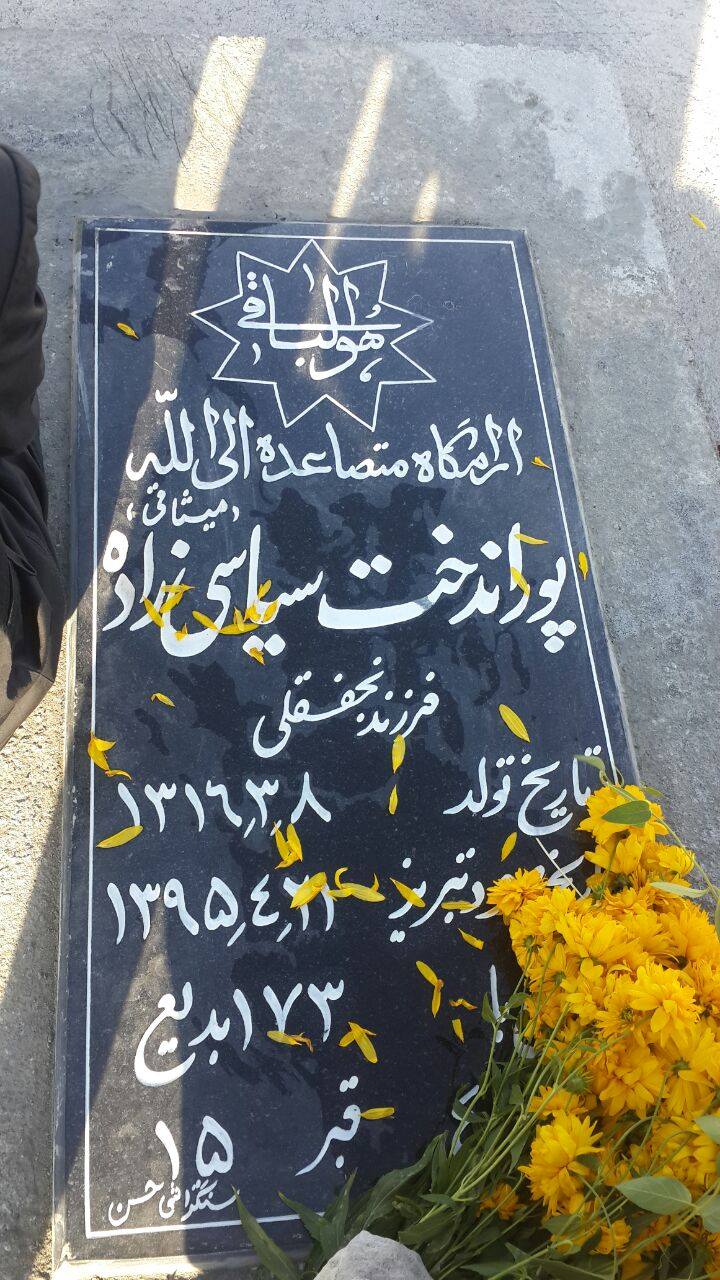 هوالباقی
ارامگاه متصاعده الی الله
(میثاقی)
پوراندخت سیاسی زاده
فرزند نجفقلی
تاریخ تولد ۱۳۱۶٫۳٫۸
تبریز ۱۳۹۵٫۴٫
۱۷۳ بدیع
قبر ۱۵
سنگتراشی حسن